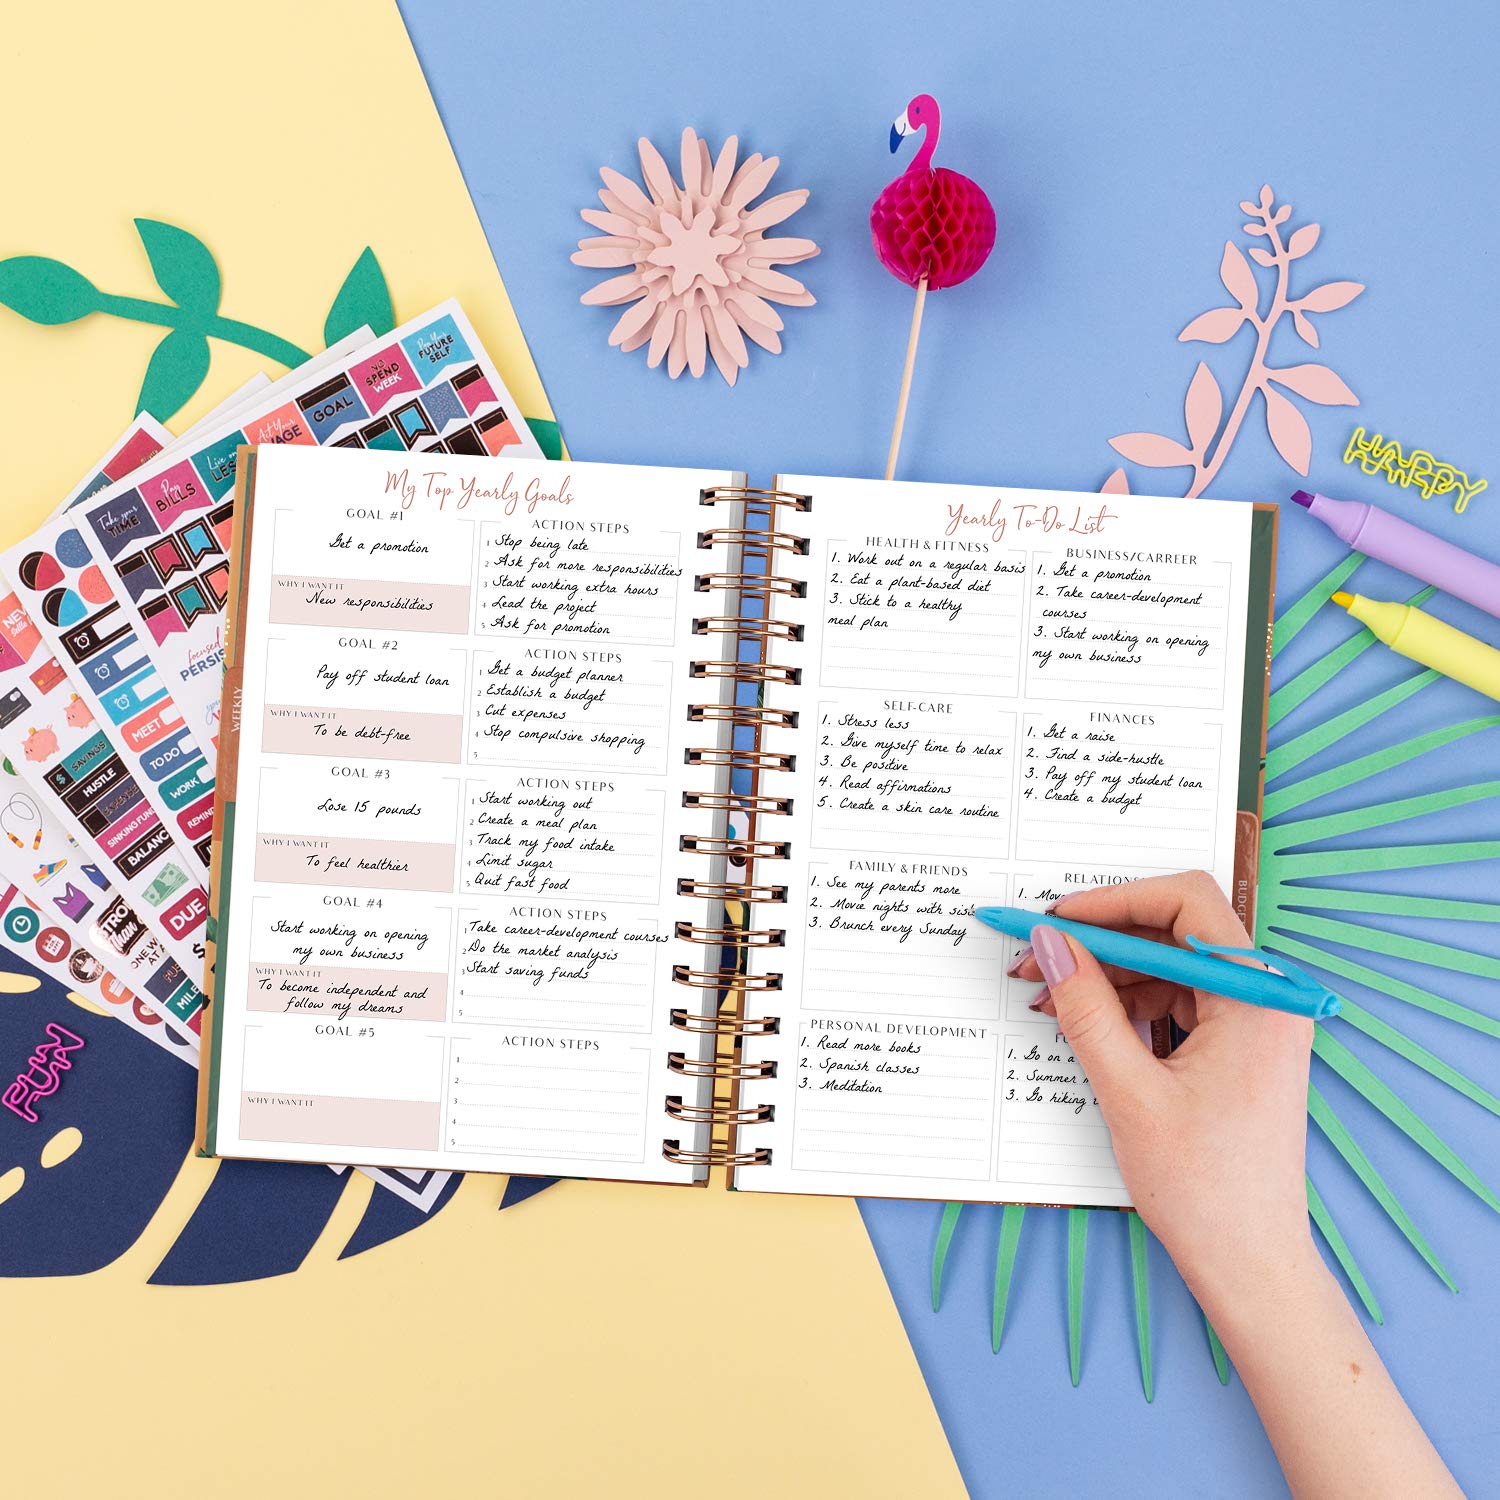 My Top Yearly Goals
GOAL #1
Get a promotion
WHY I WANT IT
New responsibilities
ACTION STEPS
1 Stop being late
2 Ask for more responsibilities
3 Start working extra hours
4 Lead the project
5 Ask for promotion
GOAL #2
Pay off student loan
WHY I WANT IT
To be debt-free
ACTION STEPS
1 Get a budget planner
2 Establish a budget
3 Cut expenses
4 Stop compulsive shopping
5
GOAL #3
Lose 15 pounds
WHY I WANT IT
To feel healthier
ACTION STEPS
1 Start working out
2 Create a meal plan
3 Track my food intake
4 Limit sugar
5 Quit fast food
GOAL #4
Start working on opening
my own business
WHY I WANT IT
To become independent and
follow my dreams
ACTION STEPS
1 Take career-development courses
2 Do the market analysis
3 Start saving funds
4
5
GOAL #5
WHY I WANT IT
ACTION STEPS
1
2
3
4
5
Yearly To-Do List
HEALTH & FITNESS
1. Work out on a regular basis
2. Eat a plant-based diet
3. Stick to a healthy
meal plan
BUSINESS/CARREER
1. Get a promotion
2. Take career-development
courses
3. Start working on opening
my own business
SELF-CARE
1. Stress less
2. Give myself time to relax
3. Be positive
4. Read affirmations
5. Create a skin care routine
FINANCES
1. Get a raise
2. Find a side-hustle
3. Pay off my student loan
4. Create a budget
FAMILY & FRIENDS
1. See my parents more
2. Movie nights with
3. Brunch every Sunday
1.
PERSONAL DEVELOPMENT
1. Read more books
2. Spanish classes
3. Meditation
1. Go on a
2. Summer
3. Go hiking
WEEKLY
Pay Your
FUTURE
SELF
NO
SPEND
WEEK
GOAL
Act Your
Live on
Pay
BILLS
Take your
TIME
focused
MEET
TO DO
WORK
SAVINGS
HUSTLE
EXPENSE
SINKING FUND
DUE
HAPPY
FUN